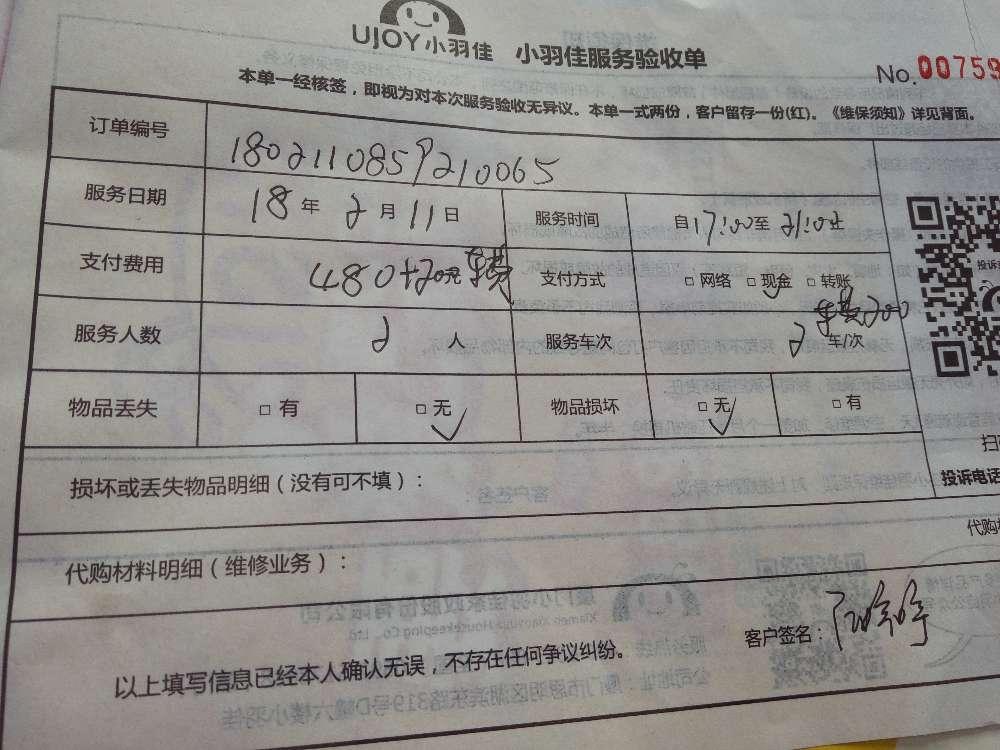 UJOY小羽佳 小羽佳服务验收单
No.00759
本单一经核签，即视为对本次服务验收无异议。本单一式两份，客户留存一份(红)。《维保须知》详见背面。
订单编号 1802110859210065
服务日期 18年2月11日 服务时间 自17:00至21:00止
支付费用 480+20元车费 支付方式 □网络 □现金 □转账
服务人数 2人 服务车次 2车/次 车费200
物品丢失 □有 □无 物品损坏 □无 □有
损坏或丢失物品明细（没有可不填）：
投诉电话
代购材料明细（维修业务）：
代购
以上填写信息已经本人确认无误，不存在任何争议纠纷。
客户签名：